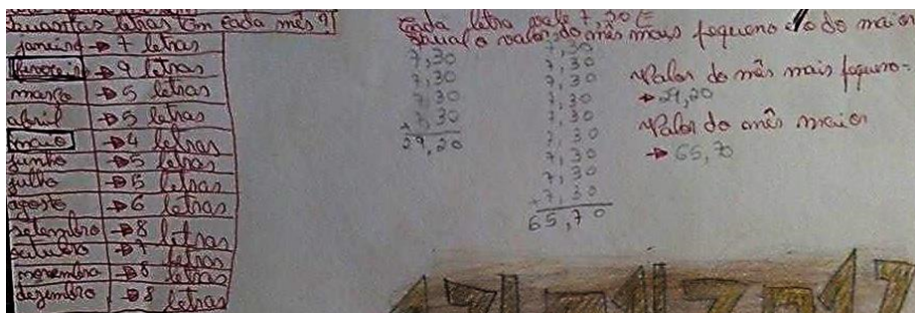 quantas letras tem cada mês?
janeiro → 7 letras
fevereiro → 9 letras
março → 5 letras
abril → 5 letras
maio → 4 letras
junho → 5 letras
julho → 5 letras
agosto → 6 letras
setembro → 8 letras
outubro → 7 letras
novembro → 8 letras
dezembro → 8 letras
Cada letra vale 7,30 €
qual o valor do mês mais pequeno e o do maior
7,30
7,30
7,30
+ 7,30
29,20
7,30
7,30
7,30
7,30
7,30
7,30
7,30
7,30
+ 7,30
65,70
Valor do mês mais pequeno=
→ 29,20
Valor do mês maior
→ 65,70